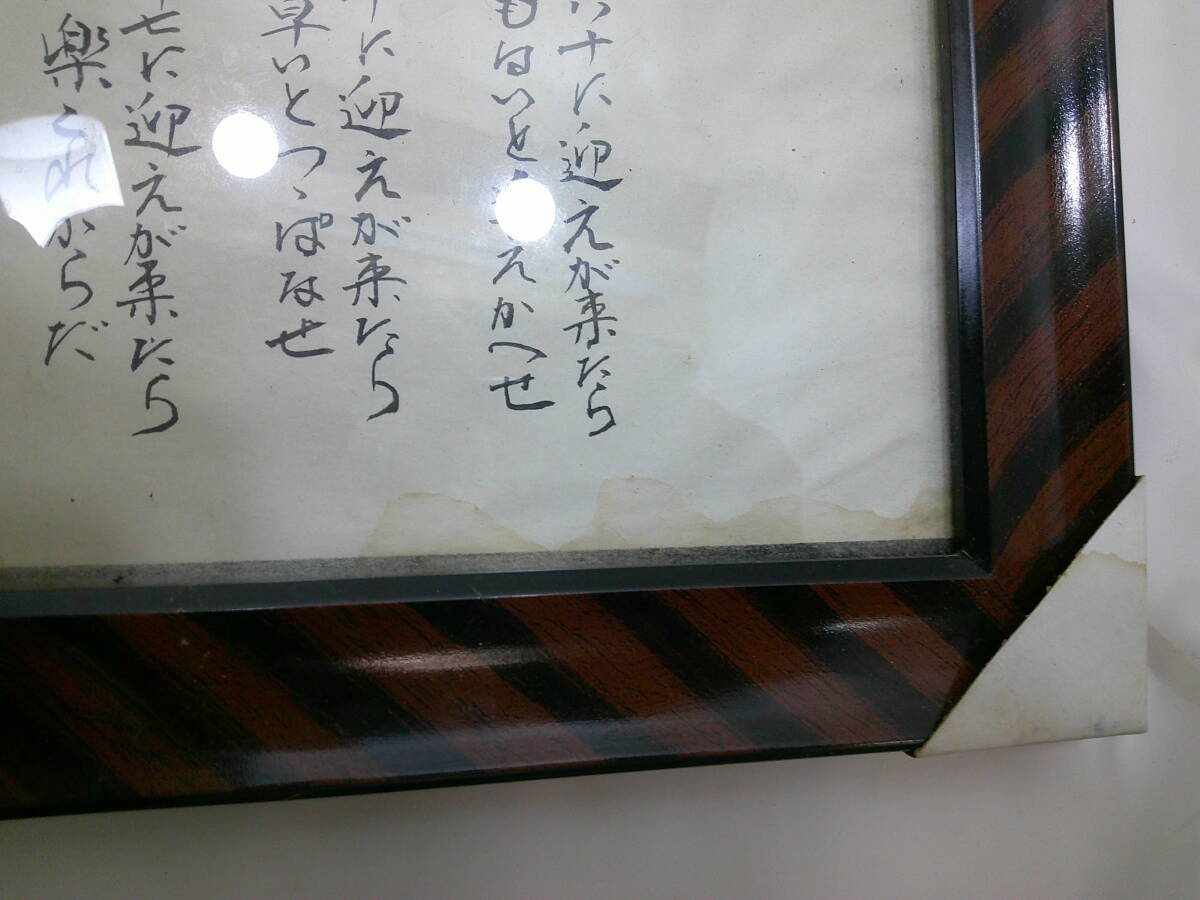 十に迎えが来たら
もはいと えかへせ
に迎えが来たら
早いとつゝぱなせ
七に迎えが来たら
楽これからだ